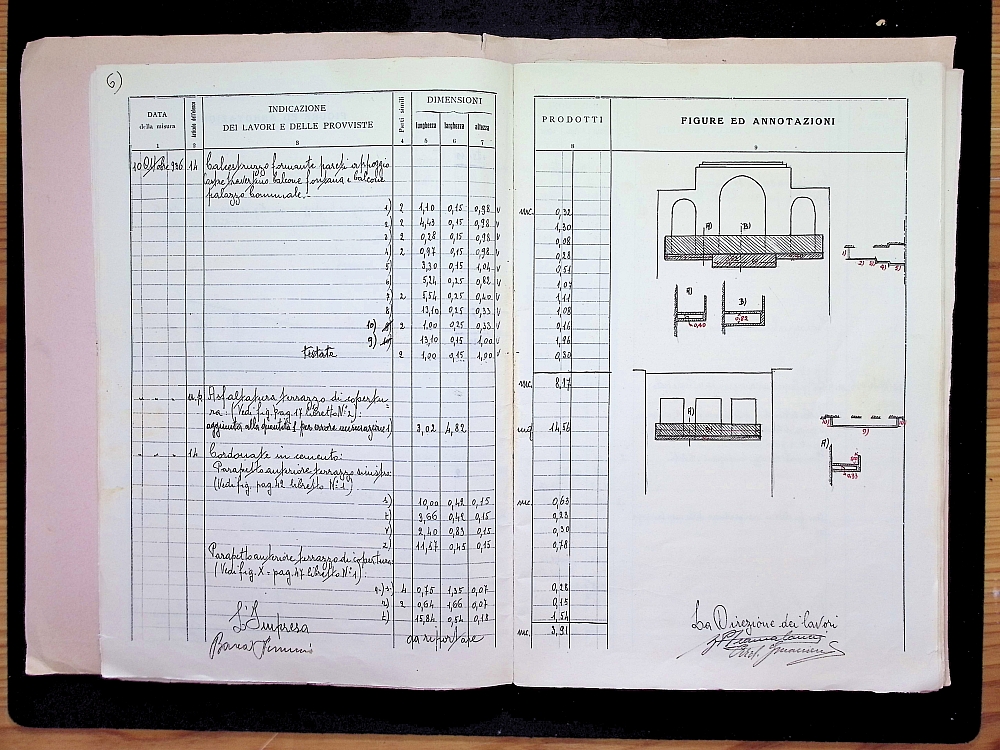 6)
DATA della misura
Articolo dell'elenco
INDICAZIONE
DEI LAVORI E DELLE PROVVISTE
Parti simili
DIMENSIONI
lunghezza larghezza altezza
PRODOTTI
FIGURE ED ANNOTAZIONI
1 2 3 4 5 6 7 8 9
10 Ottobre 926 14 Calcestruzzo formante parapi appoggio
balcone fontana e balcone
palazzo Comunale.-
1) 2 1,10 0,15 0,98 mc. 0,32
2) 2 4,43 0,15 0,98 1,30
3) 2 0,28 0,15 0,98 0,08
4) 2 0,97 0,15 0,98 0,28
5) 3,30 0,15 1,04 0,51
6) 5,24 0,25 0,82 1,07
7) 2 5,54 0,25 0,40 1,11
8) 13,10 0,25 0,33 1,08
10) 2 1,00 0,25 0,33 0,16
9) 13,10 0,15 1,00 1,96
testate 2 1,00 0,15 1,00 0,30
mc. 8,17
" " " Asfaltatura terrazzo di copertu-
ra: (Vedi fig. pag. 17 libretto N° 2)
aggiunta alla quantità f per errore misurazione 1) 3,02 4,82 mq 14,56
" " " 14 Cordonate in cemento:
Parapetto anteriore terrazzo sinistro
(Vedi fig. pag. 42 libretto N° 1)
s) 10,00 0,42 0,15 mc. 0,63
t) 3,66 0,42 0,15 0,23
v) 2,40 0,83 0,15 0,30
z) 11,57 0,45 0,15 0,78
Parapetto anteriore terrazzo di copertura
(Vedi fig. X = pag. 47 libretto N° 1)
4 0,75 1,35 0,07 0,28
2 0,64 1,66 0,07 0,15
t) 15,84 0,54 0,18 1,54
da riportare mc. 3,91
L'Impresa
A) B)
A)
0,40
B)
0,82
A)
A)
0,33
La Direzione dei lavori